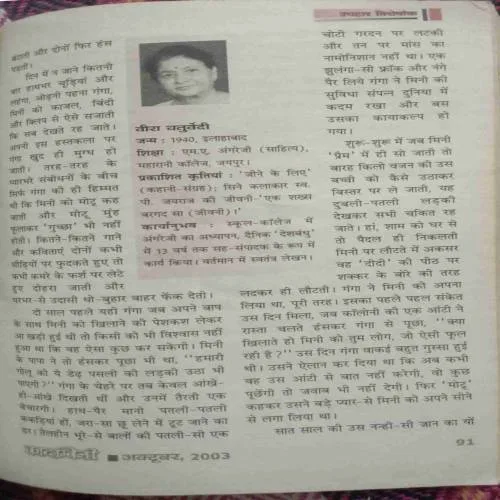 उपहार विशेषांक
बताती और दोनों फिर हंस
पड़तीं।
दिन में न जाने कितनी
बार हाथभर चूड़ियां और
लहंगा, ओढ़नी पहना गंगा,
मिनी को काजल, बिंदी
और क्लिप से ऐसे सजाती
कि सब देखते रह जाते।
अपनी इस हस्तकला पर
गंगा खुद ही मुग्ध हो
जाती। तरह-तरह के
प्यारभरे संबोधनों के बीच
सिर्फ गंगा की ही हिम्मत
थी कि मिनी को मोटू कह
जाती और मोटू मुंह
फुलाकर 'गुच्छा' भी नहीं
होती। कितने-कितने गाने
और कविताएं दोनों कभी
सीढ़ियों पर फुदकते हुए तो
कभी कमरे के फर्श पर लेटे
हुए दोहरा जाती और
घरभर-से उदासी धो-बुहार बाहर फेंक देतीं।
दो साल पहले यही गंगा जब अपने बाप
के साथ मिनी को खिलाने की पेशकश लेकर
आ खड़ी हुई थी तो किसी को भी विश्वास नहीं
हुआ था कि वह ऐसा कुछ कर सकेगी। मिनी
के पापा ने तो हंसकर पूछा भी था, ''हमारी
गोलू को ये डेढ़ पसली की लड़की उठा भी
पाएगी?'' गंगा के चेहरे पर तब केवल आंखें-
ही-आंखें दिखती थीं और उनमें तैरती एक
बेचारगी। हाथ-पैर मानो पतली-पतली
ककड़ियां हों, जरा-सा छू लेने में टूट जाने का
डर। तेलहीन भूरे-से बालों की पतली-सी एक
वीरा चतुर्वेदी
जन्म : 1940, इलाहाबाद
शिक्षा : एम.ए. अंगरेजी (साहित्य),
महारानी कॉलेज, जयपुर।
प्रकाशित कृतियां : 'जीने के लिए'
(कहानी-संग्रह); सिने कलाकार स्व.
पी. जयराज की जीवनी-'एक शख्स
बरगद सा (जीवनी)।'
कार्यानुभव : स्कूल-कॉलेज में
अंगरेजी का अध्यापन, दैनिक 'देशबंधु'
में 13 वर्ष तक सह-संपादक के रूप में
कार्य किया। वर्तमान में स्वतंत्र लेखन।
चोटी गरदन पर लटकी
और तन पर मांस का
नामोनिशान नहीं था। एक
झुलंगा-सी फ्रॉक और नंगे
पैर लिये गंगा ने मिनी की
सुविधा संपन्न दुनिया में
कदम रखा और बस
उसका कायाकल्प हो
गया।
शुरू-शुरू में जब मिनी
'प्रेम' में ही सो जाती तो
बारह किलो वजन की उस
बच्ची को कैसे उठाकर
बिस्तर पर ले जाती, यह
दुबली-पतली लड़की
देखकर सभी चकित रह
जाते। हां, शाम को घर से
तो पैदल ही निकलती
मिनी पर लौटते में अकसर
वह 'दीदी' की पीठ पर
शक्कर के बोरे की तरह
लदकर ही लौटती। गंगा ने मिनी को अपना
लिया था, पूरी तरह। इसका पहले पहल संकेत
उस दिन मिला, जब कॉलोनी की एक आंटी ने
रास्ता चलते हंसकर गंगा से पूछा, ''क्या
खिलाते हो मिनी को तुम लोग, जो ऐसी फूल
रही है?'' उस दिन गंगा वाकई बहुत गुस्सा हुई
थी। उसने ऐलान कर दिया था कि अब कभी
वह उस आंटी से बात नहीं करेगी, वो कुछ
पूछेंगी तो जवाब भी नहीं देगी। फिर 'मोटू'
कहकर उसने बड़े प्यार-से मिनी को अपने सीने
से लगा लिया था।
सात साल की उस नन्ही-सी जान का यों
कादम्बिनी ■ अक्टूबर, 2003
91